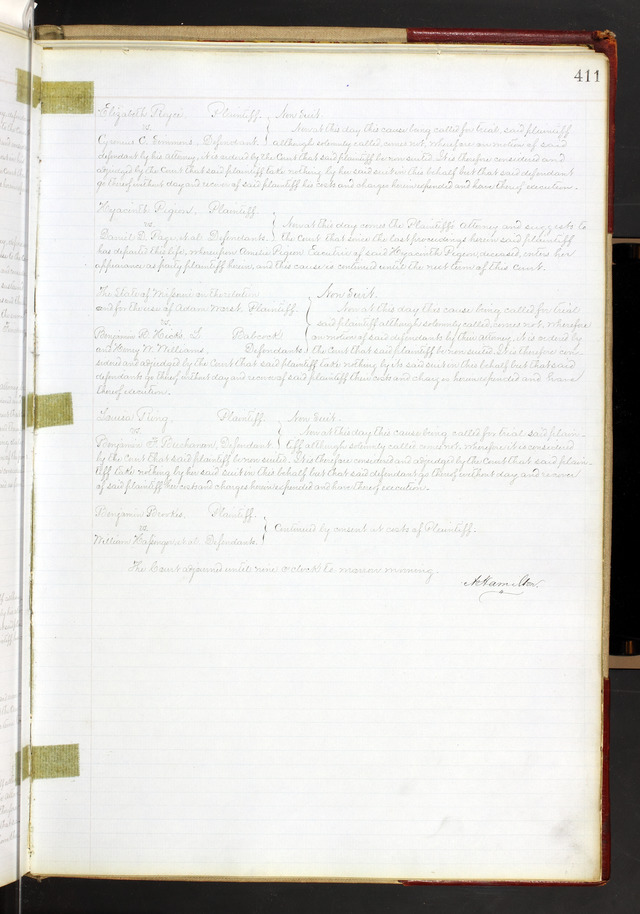 411
Elizabeth Regis, Plaintiff. Non Suit.
vs. Now at this day this cause being called for trial, said plaintiff
Cyrenius C. Simmons, Defendant. although solemnly called, comes not, wherefore on motion of said
defendant by his attorney, it is ordered by the Court that said plaintiff be non suited. It is therefore considered and
adjudged by the Court that said plaintiff take nothing by her said suit in this behalf but that said defendant
go thereof without day and recover of said plaintiff his costs and charges herein expended and have thereof execution.
Hyacinth Pigeon, Plaintiff.
vs. Now at this day comes the Plaintiff's Attorney and suggests to
Daniel D. Page, et al. Defendants. the Court that since the last proceedings herein said plaintiff
has departed this life, whereupon Pigeon Executrix of said Hyacinth Pigeon, deceased, enters her
appearance as party plaintiff herein, and this cause is continued until the next term of this Court.
The State of Missouri on the relation Non Suit.
and for the use of Adam West, Plaintiff. Now at this day this cause being called for trial
vs. said plaintiff although solemnly called, comes not, wherefore
Benjamin D. Hicks, Babcock on motion of said defendants by their attorney, it is ordered by
and Henry W. Williams, Defendants. the Court that said plaintiff be non suited. It is therefore con-
sidered and adjudged by the Court that said plaintiff take nothing by its said suit in this behalf but that said
defendants go thereof without day and recover of said plaintiff their costs and charges herein expended and have
thereof execution.
Louisa Thing, Plaintiff. Non Suit.
vs. Now at this day this cause being called for trial said plain-
Benjamin F. Buchanan, Defendant. tiff although solemnly called comes not, wherefore it is considered
by the Court that said plaintiff be non suited. It is therefore considered and adjudged by the Court that said plain-
tiff take nothing by her said suit in this behalf but that said defendant go thereof without day and recover
of said plaintiff his costs and charges herein expended and have thereof execution.
Benjamin Brooks, Plaintiff.
vs. Continued by consent at costs of Plaintiff.
William Hassinger, et al. Defendants.
The Court adjourned until nine o'clock to morrow morning.
A. Hamilton.